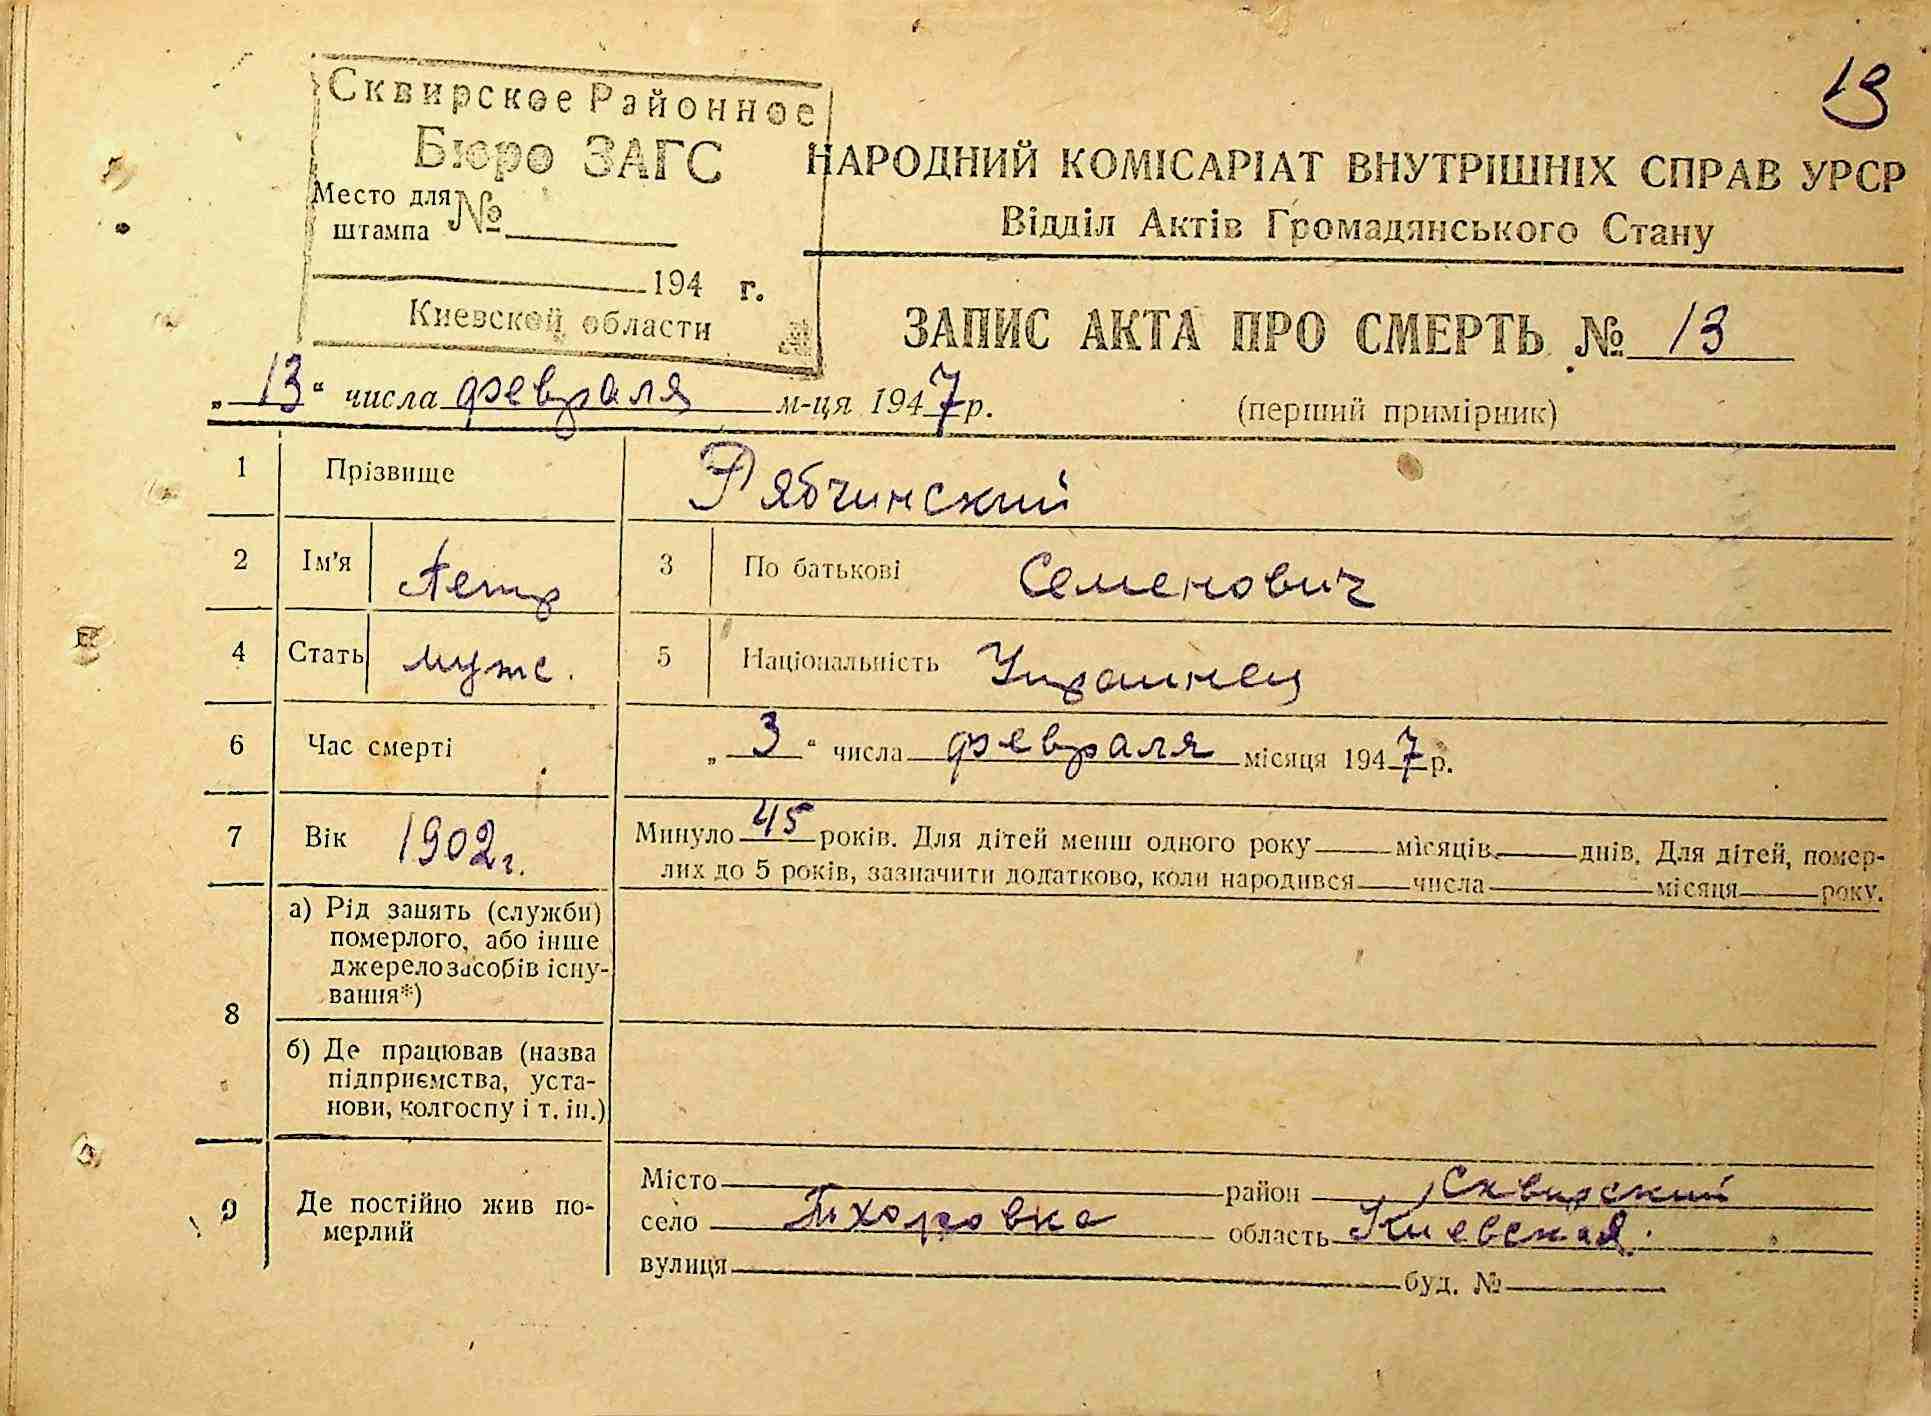 13
Сквирское Районное
Бюро ЗАГС
Место для
штампа
№
194 г.
Киевской области
НАРОДНИЙ КОМІСАРІАТ ВНУТРІШНІХ СПРАВ УРСР
Відділ Актів Громадянського Стану
ЗАПИС АКТА ПРО СМЕРТЬ № 13
„13“ числа февраля м-ця 1947 р.
(перший примірник)
1 Прізвище Рябчинский
2 Ім'я Петр 3 По батькові Семенович
4 Стать муж. 5 Національність Украинец
6 Час смерті „3“ числа февраля місяця 1947 р.
7 Вік 1902 г. Минуло 45 років. Для дітей менш одного року місяців днів. Для дітей, помер-
лих до 5 років, зазначити додатково, коли народився числа місяця року.
8 а) Рід занять (служби)
померлого, або інше
джерело засобів існу-
вання*)
б) Де працював (назва
підприємства, уста-
нови, колгоспу і т. ін.)
9 Де постійно жив по-
мерлий
Місто район Сквирский
село Тхоровка область Киевская.
вулиця буд. №